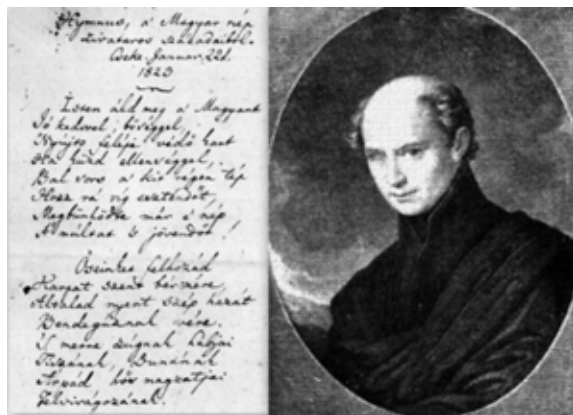 Hymnus, a' Magyar nép
zivataros századaiból.
Cseke Januar. 22d.
1823
Isten áld meg a' Magyart
Jó kedvvel, bőséggel,
Nyújts feléje védő kart
Ha küzd ellenséggel,
Bal sors a' kit régen tép
Hozz rá víg esztendőt,
Megbünhödte már e' nép
A' múltat 's jövendőt!
Őseinket felhozád
Kárpát szent bérczére,
Általad nyert szép hazát
Bendegúznak vére.
'S merre zúgnak habjai
Tiszának, Dunának
Árpád hős magzatjai
Felvirágozának.